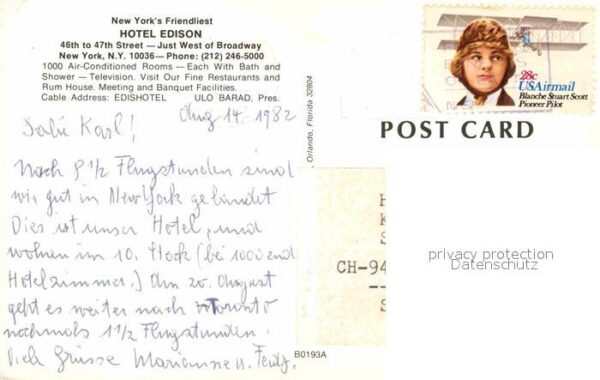 New York's Friendliest
HOTEL EDISON
46th to 47th Street — Just West of Broadway
New York, N.Y. 10036 — Phone: (212) 246-5000
1000 Air-Conditioned Rooms — Each With Bath and
Shower — Television. Visit Our Fine Restaurants and
Rum House. Meeting and Banquet Facilities.
Cable Address: EDISHOTEL ULO BARAD, Pres.
Aug 14. 1982
Karl!
Nach 8 1/2 Flugstunden sind
wir gut in New York gelandet
Dies ist unser Hotel, und
wohnen im 10. Stock (bei 1000
Hotelzimmer.) Am 20. August
geht es weiter nach Toronto
nochmals 1 1/2 Flugstunden.
Viele Grüsse Marianne u.
Orlando, Florida 32804
B0193A
28c
USAirmail
Blanche Stuart Scott
Pioneer Pilot
POST CARD
H
K
S
CH-94
--
S
privacy protection
Datenschutz